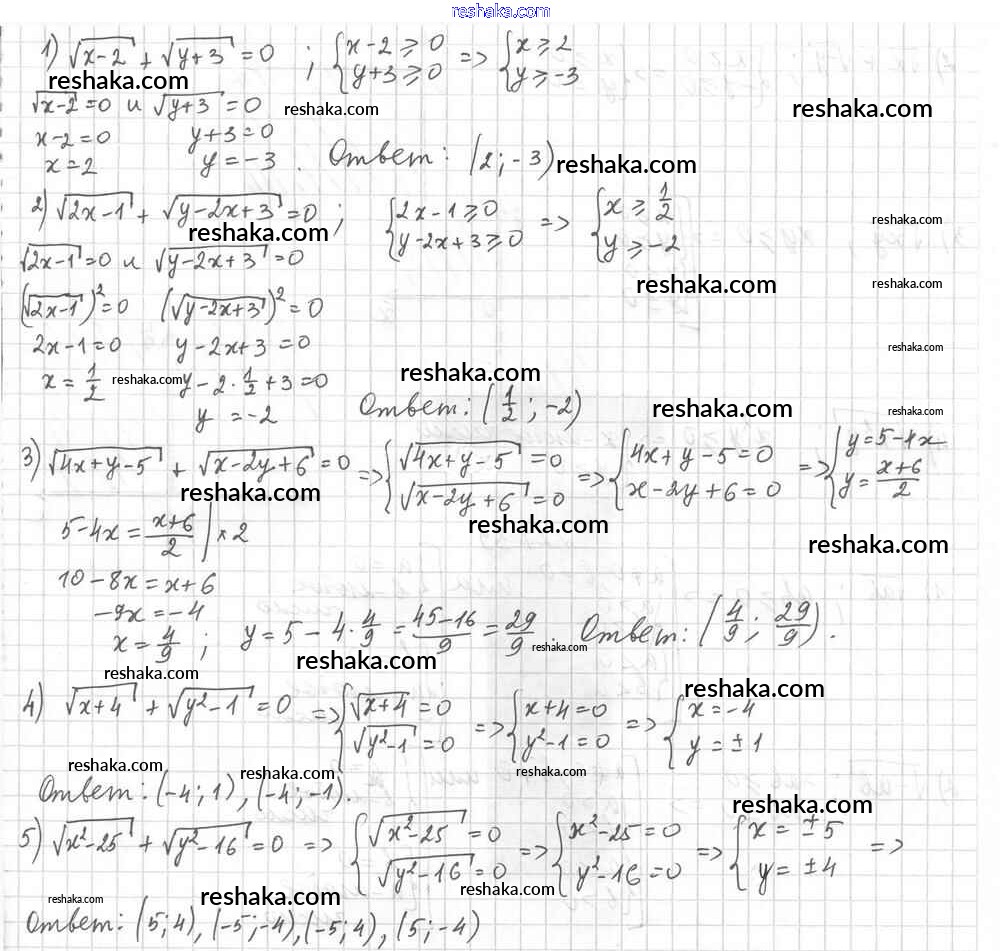 reshaka.com
1) √(x-2) + √(y+3) = 0 ; {x-2 ≥ 0 {y+3 ≥ 0 => {x ≥ 2 {y ≥ -3
reshaka.com
√(x-2) = 0 и √(y+3) = 0 reshaka.com reshaka.com
x-2=0 y+3=0
x=2 y=-3. Ответ: (2; -3) reshaka.com
2) √(2x-1) + √(y-2x+3) = 0 ; {2x-1 ≥ 0 {y-2x+3 ≥ 0 => {x ≥ 1/2 {y ≥ -2 reshaka.com
reshaka.com
√(2x-1) = 0 и √(y-2x+3) = 0
reshaka.com reshaka.com
(√(2x-1))² = 0 (√(y-2x+3))² = 0
2x-1=0 y-2x+3=0 reshaka.com
x = 1/2 reshaka.com y-2·1/2+3=0 reshaka.com
y = -2 Ответ: (1/2; -2) reshaka.com reshaka.com
3) √(4x+y-5) + √(x-2y+6) = 0 => {√(4x+y-5) = 0 {√(x-2y+6) = 0 => {4x+y-5=0 {x-2y+6=0 => {y=5-4x {y=(x+6)/2
reshaka.com reshaka.com
5-4x = (x+6)/2 | ×2 reshaka.com
10-8x=x+6
-9x=-4
x=4/9 ; y=5-4·4/9 = (45-16)/9 = 29/9. reshaka.com Ответ: (4/9; 29/9).
reshaka.com reshaka.com
4) √(x+4) + √(y²-1) = 0 => {√(x+4) = 0 {√(y²-1) = 0 => {x+4=0 {y²-1=0 => {x=-4 {y=±1
reshaka.com
reshaka.com reshaka.com reshaka.com
Ответ: (-4; 1), (-4; -1).
reshaka.com
5) √(x²-25) + √(y²-16) = 0 => {√(x²-25) = 0 {√(y²-16) = 0 => {x²-25=0 {y²-16=0 => {x=±5 {y=±4 =>
reshaka.com reshaka.com reshaka.com reshaka.com
Ответ: (5; 4), (-5; -4), (-5; 4), (5; -4)